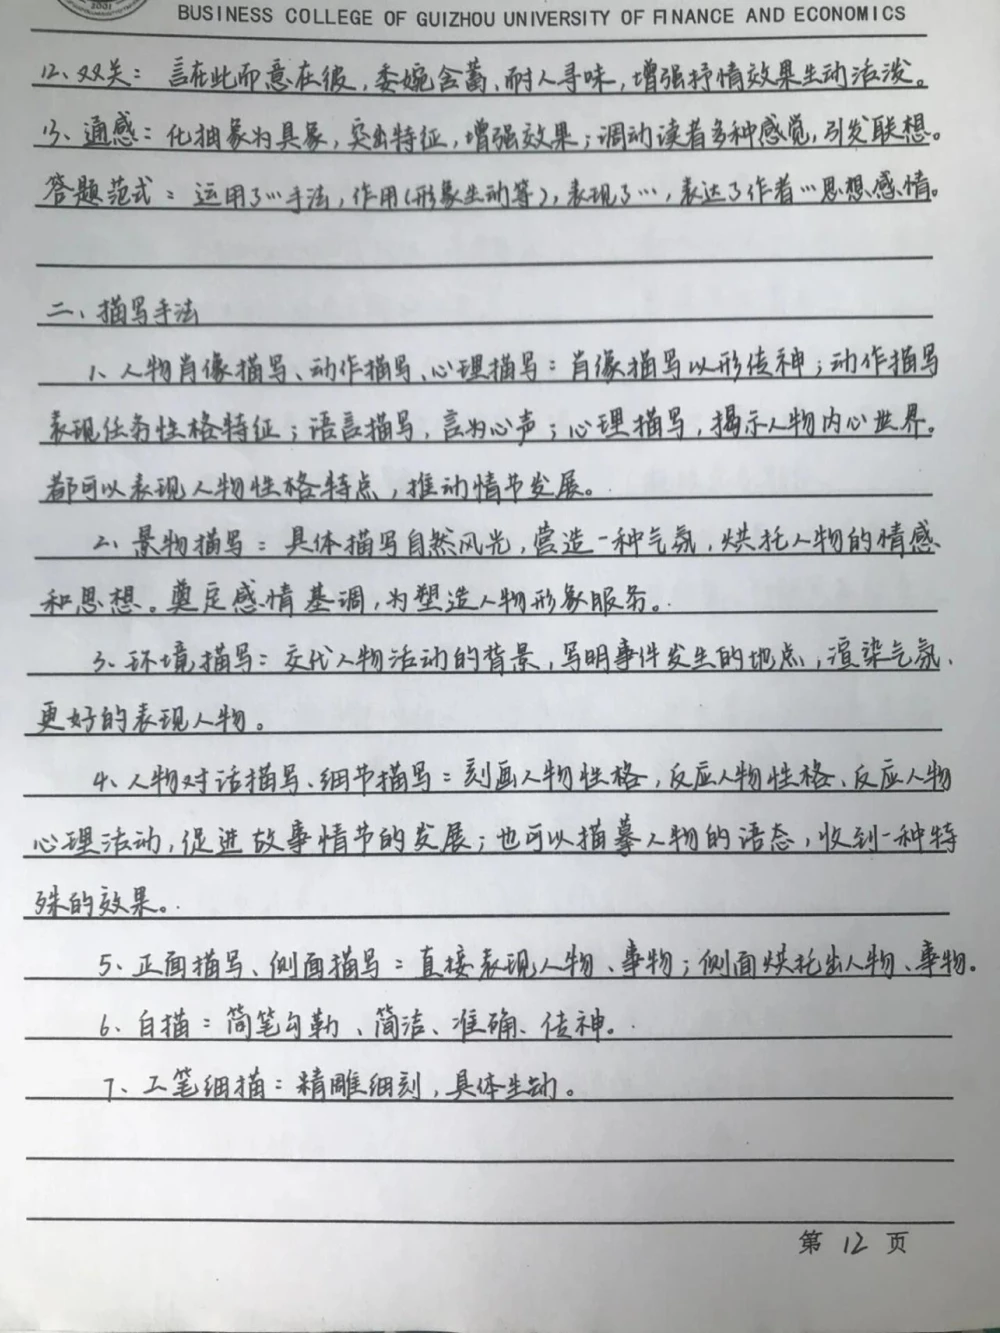 2001
BUSINESS COLLEGE OF GUIZHOU UNIVERSITY OF FINANCE AND ECONOMICS
12、双关：言在此而意在彼，委婉含蓄、耐人寻味，增强抒情效果生动活泼。
13、通感：化抽象为具象，突出特征，增强效果；调动读者多种感觉，引发联想。
答题范式：运用了…手法，作用(形象生动等)，表现了…，表达了作者…思想感情。
二、描写手法
1、人物肖像描写、动作描写、心理描写：肖像描写以形传神；动作描写
表现任务性格特征；语言描写，言为心声；心理描写，揭示人物内心世界。
都可以表现人物性格特点，推动情节发展。
2、景物描写：具体描写自然风光，营造一种气氛，烘托人物的情感
和思想。奠定感情基调，为塑造人物形象服务。
3、环境描写：交代人物活动的背景，写明事件发生的地点，渲染气氛、
更好的表现人物。
4、人物对话描写、细节描写：刻画人物性格，反应人物性格、反应人物
心理活动，促进故事情节的发展；也可以描摹人物的语态，收到一种特
殊的效果。
5、正面描写、侧面描写：直接表现人物、事物；侧面烘托出人物、事物。
6、白描：简笔勾勒、简洁、准确、传神。
7、工笔细描：精雕细刻，具体生动。
第 12 页